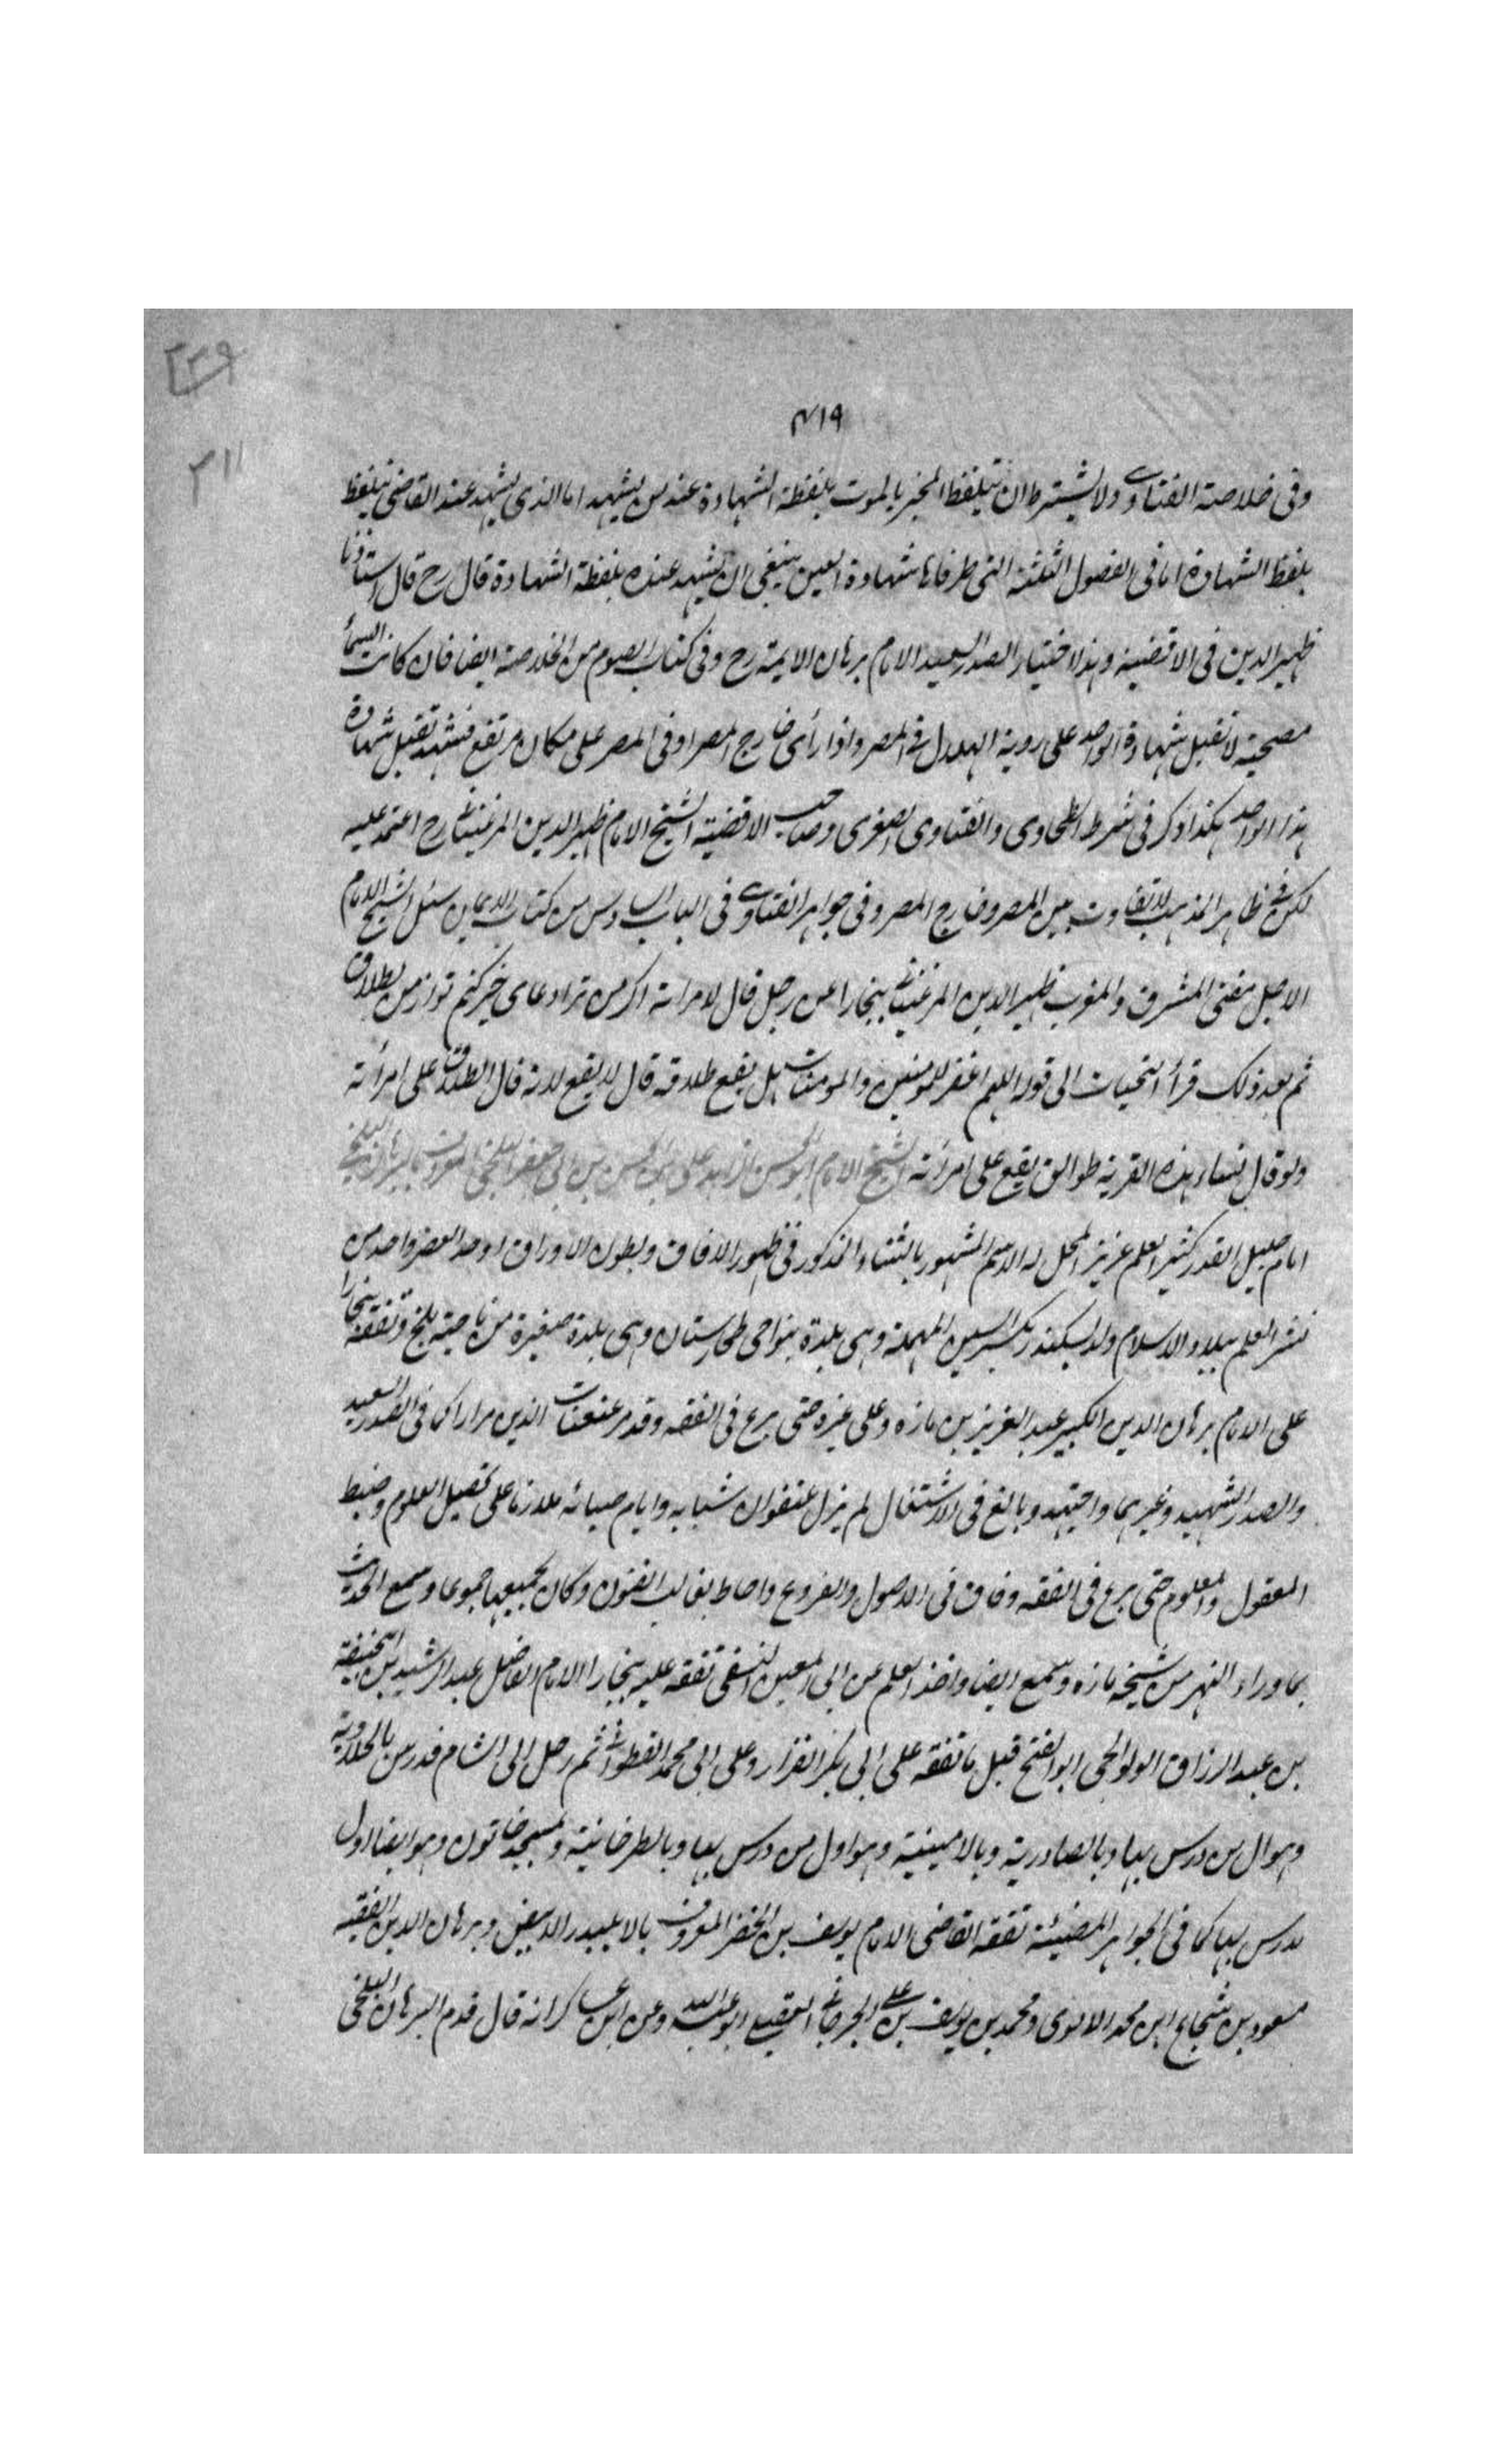 ٢٢٩
٣١١
٤١٩
وفى خلاصة الفتاوى ولا يشترط ان يتلفظ المخبر بالموت بلفظة الشهادة عند من يشهد اما الذى يشهد عند القاضى يتلفظ
بلفظ الشهادة اما فى الفصول الثلثة التى طرفاها شهادة العين ينبغى ان يشهد عنده بلفظة الشهادة قال رح قال استاذنا
ظهير الدين فى الاقضية وهذا اختيار الصدر السعيد الامام برهان الايمة رح وفى كتاب الصوم من الخلاصة ايضا فان كانت السمأ
مصحية لا تقبل شهادة الواحد على روية الهلال فى المصر واذا رأى خارج المصر او فى المصر على مكان مرتفع فشهد تقبل شهادة
هذا الواحد هكذا ذكر فى شرط الطحاوى والفتاوى الصغرى وصاحب الاقضية الشيخ الامام ظهير الدين المرغينانى رح اعتمد عليه
لكن فى ظاهر المذهب لا تفاوت بين المصر وخارج المصر وفى جواهر الفتاوى فى الباب السادس من كتاب الايمان سئل الشيخ الامام
الاجل مفتى المشرق والمغرب ظهير الدين المرغينانى ببخارا عن رجل قال لامراته اكر من ترا دعاى خير كنم تو از من بطلاق
ثم بعد ذلك قرأ التحيات الى قوله اللهم اغفر للمومنين والمومنات هل يقع طلاقه قال لا يقع لانه قال الطلاق على امرأته
ولو قال نساء هذه القرية طوالق يقع على امرأته الشيخ الامام ابو الحسن الزاهد على بن الحسن بن ابى جعفر البلخى المعروف بالبرهان البلخى
امام جليل القدر كثير العلم عزيز المحل له الاسم المشهور بالثناء المذكور فى ظهور الافاق وبطون الاوراق اوحد العصر واحد من
نشر العلم ببلاد الاسلام ولد بسكندر بكسر السين المهملة وهى بلدة بنواحى طخارستان وهى بلدة صغيرة من ناحية بلخ وتفقه ببخارا
على الامام برهان الدين الكبير عبد العزيز بن مازه وعلى غيره حتى برع فى الفقه وقد مر عنعنات الذين مرارا كما فى الصدر السعيد
والصدر الشهيد وغيرهما واجتهد وبالغ فى الاشتغال لم يزل عنفوان شبابه وايام صبائه ملازما على تحصيل العلوم وضبط
المعقول والمعلوم حتى برع فى الفقه وفاق فى الاصول والفروع واحاط بغالب الفنون وكان لجميعها جموعا وسمع الحديث
بما وراء النهر من شيخه مازه وسمع ايضا واخذ العلم عن ابى المعين النسفى تفقه عليه ببخارا الامام الفاضل عبد الرشيد بن ابى حنيفة
بن عبد الرزاق الولوالجى ابو الفتح قبل ما تفقه على ابى بكر القزار وعلى ابى محمد القطوانى ثم رحل الى الشام فدرس بالحلاوية
وهو ال من درس بها وبالصادرية وبالامينية وهو اول من درس بها وبالطرخانية وبمسجد خاتون وهو ايضا اول
مدرس بها كما فى الجواهر المضيئة تفقه القاضى الامام يوسف بن الخضر المعروف بالا بلبيدر الابيض وبرهان الدين الفقيه
مسعود بن شجاع ابن محمد الاموى ومحمد بن يوسف بن على الجرجانى العقيلى ابو عبد الله وعن ابن عساكر انه قال قدم البرهان البلخى